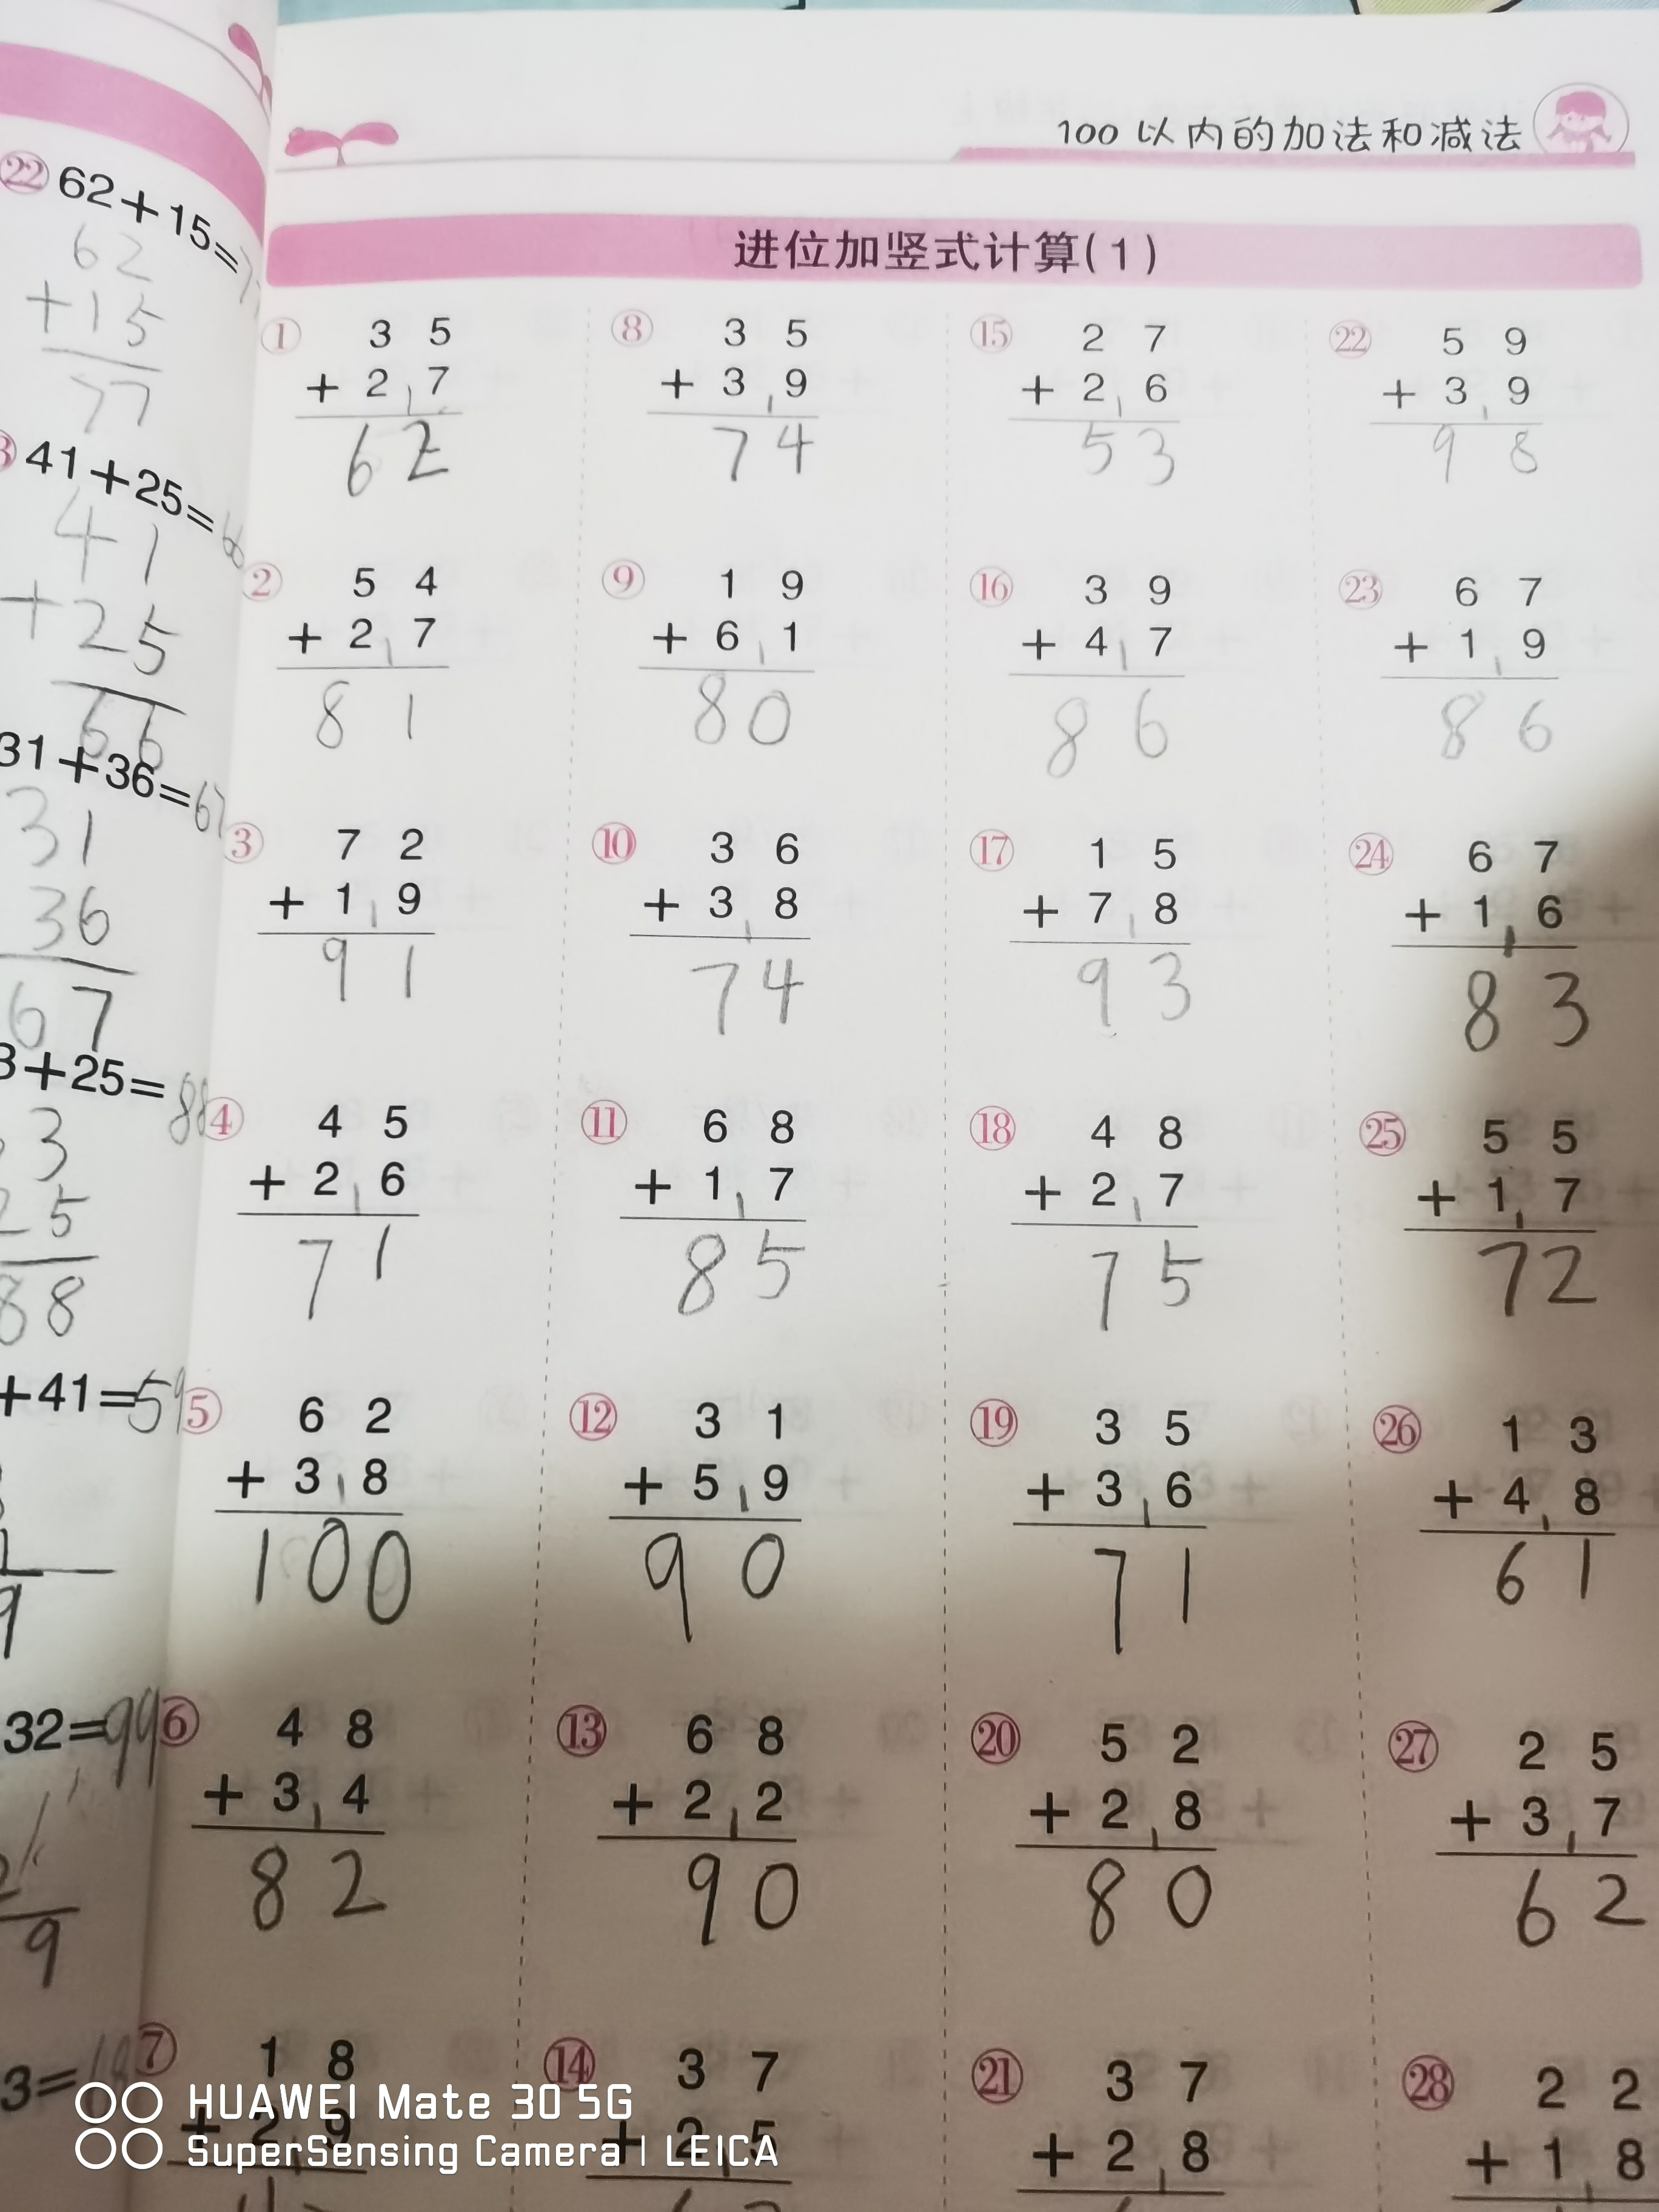 100以内的加法和减法
进位加竖式计算(1)
㉒ 62+15=
62
+15
77
41+25=
41
+25
66
31+36=67
31
36
67
3+25=88
3
25
88
+41=59
9
32=99
9
3=
① 35
+27
62
② 54
+27
81
③ 72
+19
91
④ 45
+26
71
⑤ 62
+38
100
⑥ 48
+34
82
⑦ 18
+29
⑧ 35
+39
74
⑨ 19
+61
80
⑩ 36
+38
74
⑪ 68
+17
85
⑫ 31
+59
90
⑬ 68
+22
90
⑭ 37
+25
⑮ 27
+26
53
⑯ 39
+47
86
⑰ 15
+78
93
⑱ 48
+27
75
⑲ 35
+36
71
⑳ 52
+28
80
㉑ 37
+28
㉒ 59
+39
98
㉓ 67
+19
86
㉔ 67
+16
83
㉕ 55
+17
72
㉖ 13
+48
61
㉗ 25
+37
62
㉘ 22
+18
HUAWEI Mate 30 5G
SuperSensing Camera | LEICA